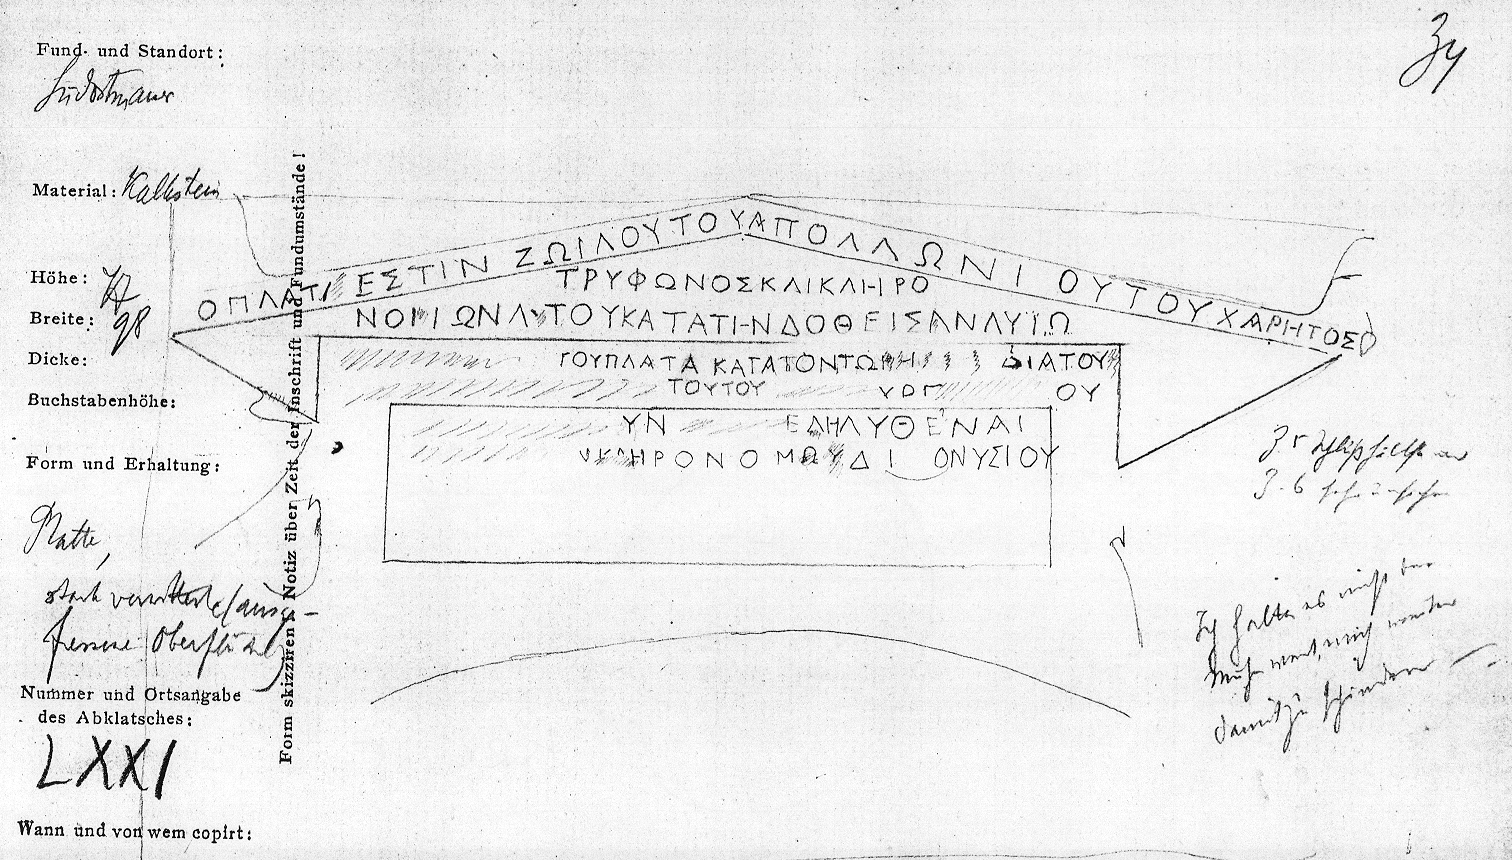 Fund- und Standort:
Südostmauer
34
Material: Kalkstein
Höhe:
Breite: 98
Dicke:
Buchstabenhöhe:
Form und Erhaltung:
Platte,
stark verwitterte/ausge-
fressene Oberfläche
Nummer und Ortsangabe
des Abklatsches:
LXXI
Wann und von wem copirt:
Form skizziren! Notiz über Zeit der Inschrift und Fundumstände!
ΟΠΛΑΤΙ ΕΣΤΙΝ ΖΩΙΛΟΥΤΟΥΑΠΟΛΛΩΝΙΟΥΤΟΥΧΑΡΗΤΟΣ
ΤΡΥΦΩΝΟΣΚΛΙΚΛΗΡΟ
ΝΟΜΙΩΝΛΥΤΟΥΚΑΤΑΤΗΝΔΟΘΕΙΣΑΝΑΥΤΩ
ΤΟΥΠΛΑΤΑ ΚΑΤΑΤΟΝΤΩ ΔΙΑΤΟΥ
ΤΟΥΤΟΥ ΟΥ
ΥΝ ΕΔΗΛΥΘΕΝΑΙ
ΥΚΛΗΡΟΝΟΜΩΥΔΙ ΟΝΥΣΙΟΥ
Ich halte es nicht der
Mühe wert, mich weiter
damit zu schinden